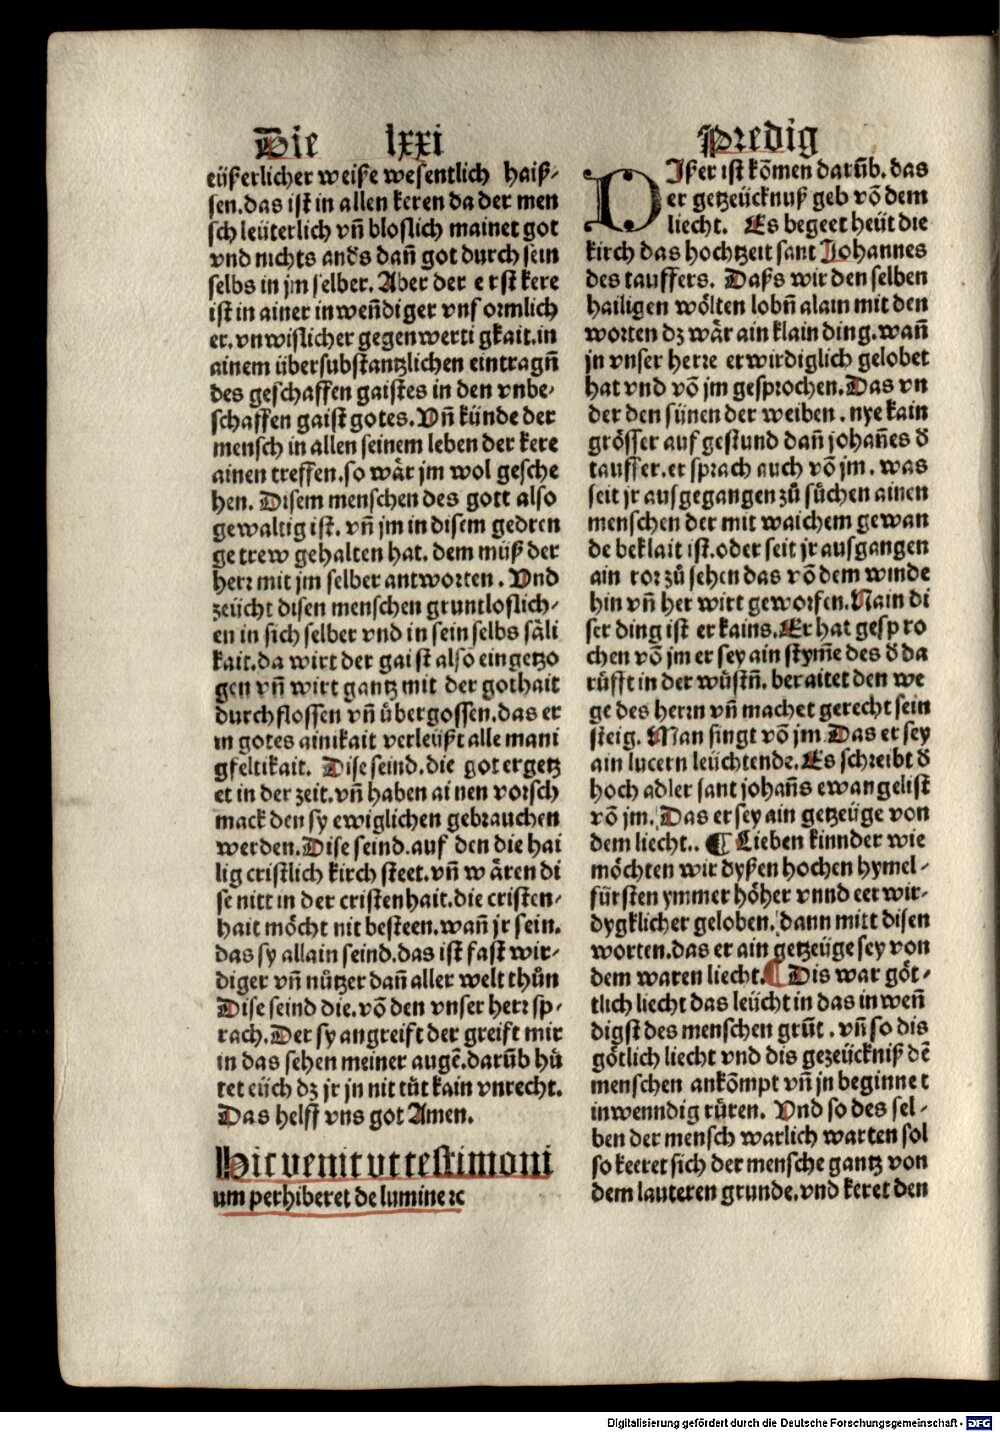 Die lxxi Predig
eüſſerlicher weiſſe weſentlich haiſ-
ſen.das iſt in allen keren da der men
ſch leüterlich vn̄ bloſlich mainet got
vnd nichts and's dan̄ got durch ſein
ſelbs in jm ſelber. Aber der erſt kere
iſt in ainer inwen̄diger vnformlich
er.vnwiſlicher gegenwertigkait.in
ainem überſubſtantzlichen eintragn̄
des geſchaffen gaiſtes in den vnbe-
ſchaffen gaiſt gotes. Vn̄ künde der
menſch in allen ſeinem leben der kere
ainen treffen.ſo wår jm wol geſche
hen. Diſem menſchen des gott alſo
gewaltig iſt. vn̄ jm in diſem gedren
ge trew gehalten hat. dem můſß der
herr mit jm ſelber antworten. Vnd
zeücht diſen menſchen gruntloſlich-
en in ſich ſelber vnd in ſein ſelbs ſåli
kait.da wirt der gaiſt alſo eingetzo
gen vn̄ wirt gantz mit der gothait
durchfloſſen vn̄ übergoſſen.das er
in gotes ainikait verleüſßt alle mani
gfeltikait. Diſe ſeind.die got ergetz
et in der zeit.vn̄ haben ainen vorſch
mack den ſy ewiglichen gebrauchen
werden.Diſe ſeind.auf den die hai
lig criſtlich kirch ſteet.vn̄ wåren di
ſe nitt in der criſtenhait.die criſten-
hait möcht nit beſteen.wan̄ jr ſein.
das ſy allain ſeind.das iſt faſt wir-
diger vn̄ nützer dan̄ aller welt thůn
Diſe ſeind die.vō den vnſer herr ſp-
rach.Der ſy angreift der greift mir
in das ſehen meiner augē.darūb hů
tet eüch dz jr jn nit tůt kain vnrecht.
Das helff vns got Amen.
Hic venit vt teſtimoni
um perhiberet de lumine ⁊c
DIſßer iſt kōmen darūb. das
er getzeücknuſß geb vō dem
liecht. Es begeet heüt die
kirch das hochtzeit ſant Johannes
des tauffers. Daſs wir den ſelben
hailigen wölten lobn̄ alain mit den
worten dz wår ain klain ding.wan̄
jn vnſer herre erwirdiglich gelobet
hat vnd vō jm geſprochen.Das vn
der den ſünen der weiben. nye kain
gröſſer auf geſtund dan̄ johan̄es d'
tauffer.er ſprach auch vō jm. was
ſeit jr auſgegangen zů ſůchen ainen
menſchen der mit waichem gewan
de beklait iſt.oder ſeit jr auſgangen
ain ror zů ſehen das vō dem winde
hin vn̄ her wirt geworfen.Nain di
ſer ding iſt er kains.Er hat geſpro
chen vō jm er ſey ain ſtym̄e des d' da
růfft in der wůſtn̄. beraitet den we
ge des herrn vn̄ machet gerecht ſein
ſteig. Man ſingt vō jm.Das er ſey
ain lucern leüchtende.Es ſchreibt d'
hoch adler ſant johan̄s ewangeliſt
vō jm. Das er ſey ain getzeüge von
dem liecht.. ¶ Lieben kinnder wie
möchten wir dyſßen hochen hymel-
fürſten ymmer höher vnnd eer wir-
dygklicher geloben. dann mitt diſen
worten.das er ain getzeüge ſey von
dem waren liecht.¶ Dis war göt-
tlich liecht das leücht in das inwen̄
digſt des menſchen grūt. vn̄ ſo dis
götlich liecht vnd dis gezeückniſß dē
menſchen ankōmpt vn̄ jn beginnet
inwenndig růren. Vnd ſo des ſel-
ben der menſch warlich warten ſol
ſo keeret ſich der menſche gantz von
dem lauteren grunde.vnd keret den
Digitalisierung gefördert durch die Deutsche Forschungsgemeinschaft - DFG